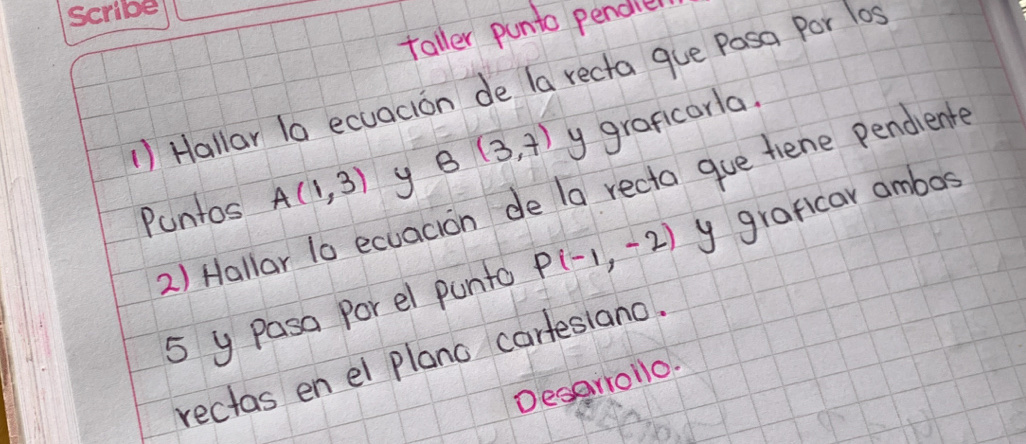 Scribe
taller punto
1) Hallar la ecuación de la recta que pasa por los
puntos A(1,3) y B (3,7) y graficarla.
2) Hallar la ecuación de la recta que tiene pendiente
5 y pasa por el punto P(-1, -2) y graficar ambas
rectas en el plano cartesiano.
Desarrollo.